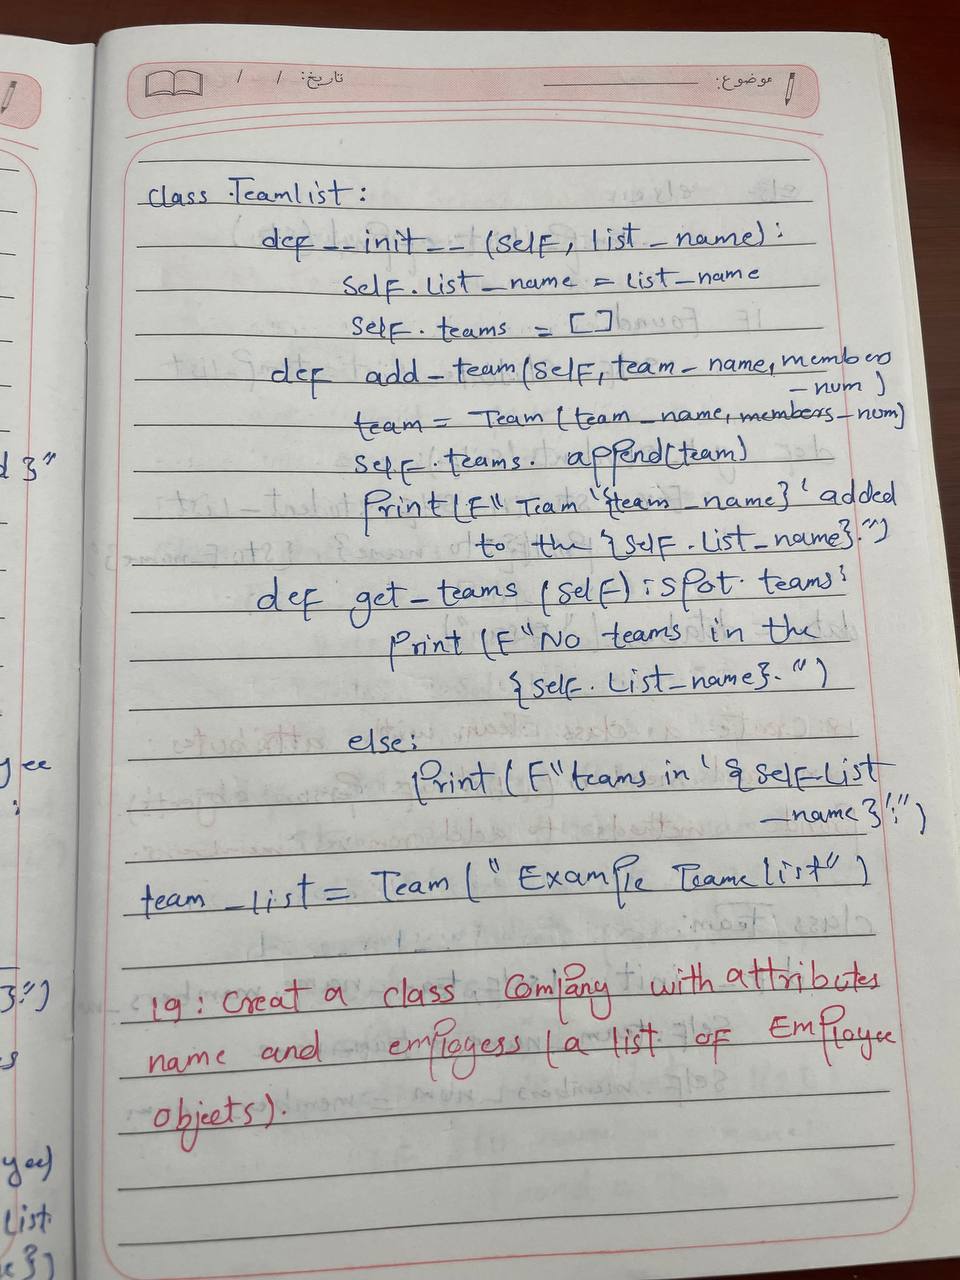 موضوع: تاریخ: / /
class Teamlist:
def __init__ (self, list_name):
self.list_name = list_name
self.teams = []
def add_team(self, team_name, members
_num)
team = Team (team_name, members_num)
self.teams.append(team)
Print(F" Team '{team_name}' added
to the {self.list_name}.")
def get_teams (self): teams:
Print (F"No teams in the
{self.list_name}.")
else:
Print (F"teams in '{self.list
_name}':")
team_list = Team ("Example Teamelist")
19: Creat a class Company with attributes
name and employess (a list of Employee
objects).
d }"
yee
:
}.")
s
yee)
List
e})